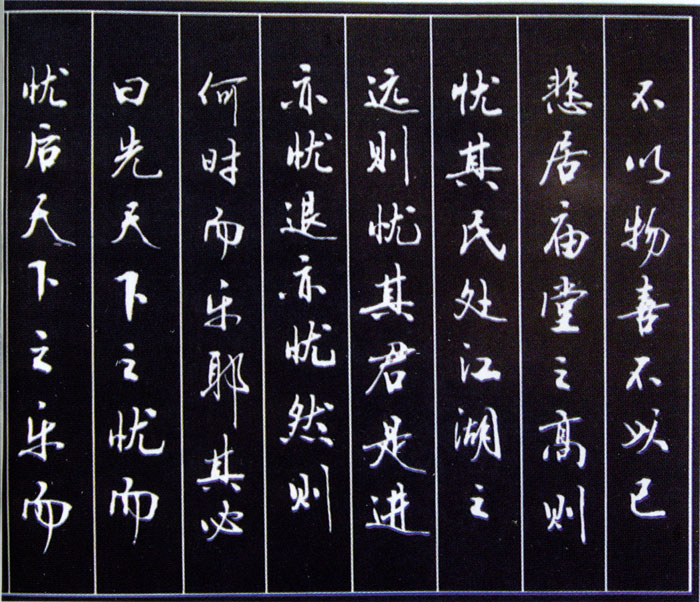 不以物喜不以己
悲居庙堂之高则
忧其民处江湖之
远则忧其君是进
亦忧退亦忧然则
何时而乐耶其必
曰先天下之忧而
忧后天下之乐而